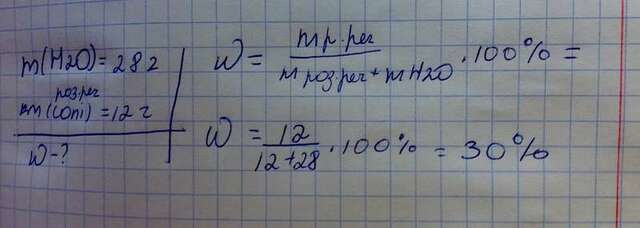 m(H2O) = 28 г
роз.реч
m(солі) = 12 г
W - ?
W = m р.реч / m роз.реч + m H2O · 100% =
W = 12 / 12 + 28 · 100% = 30%